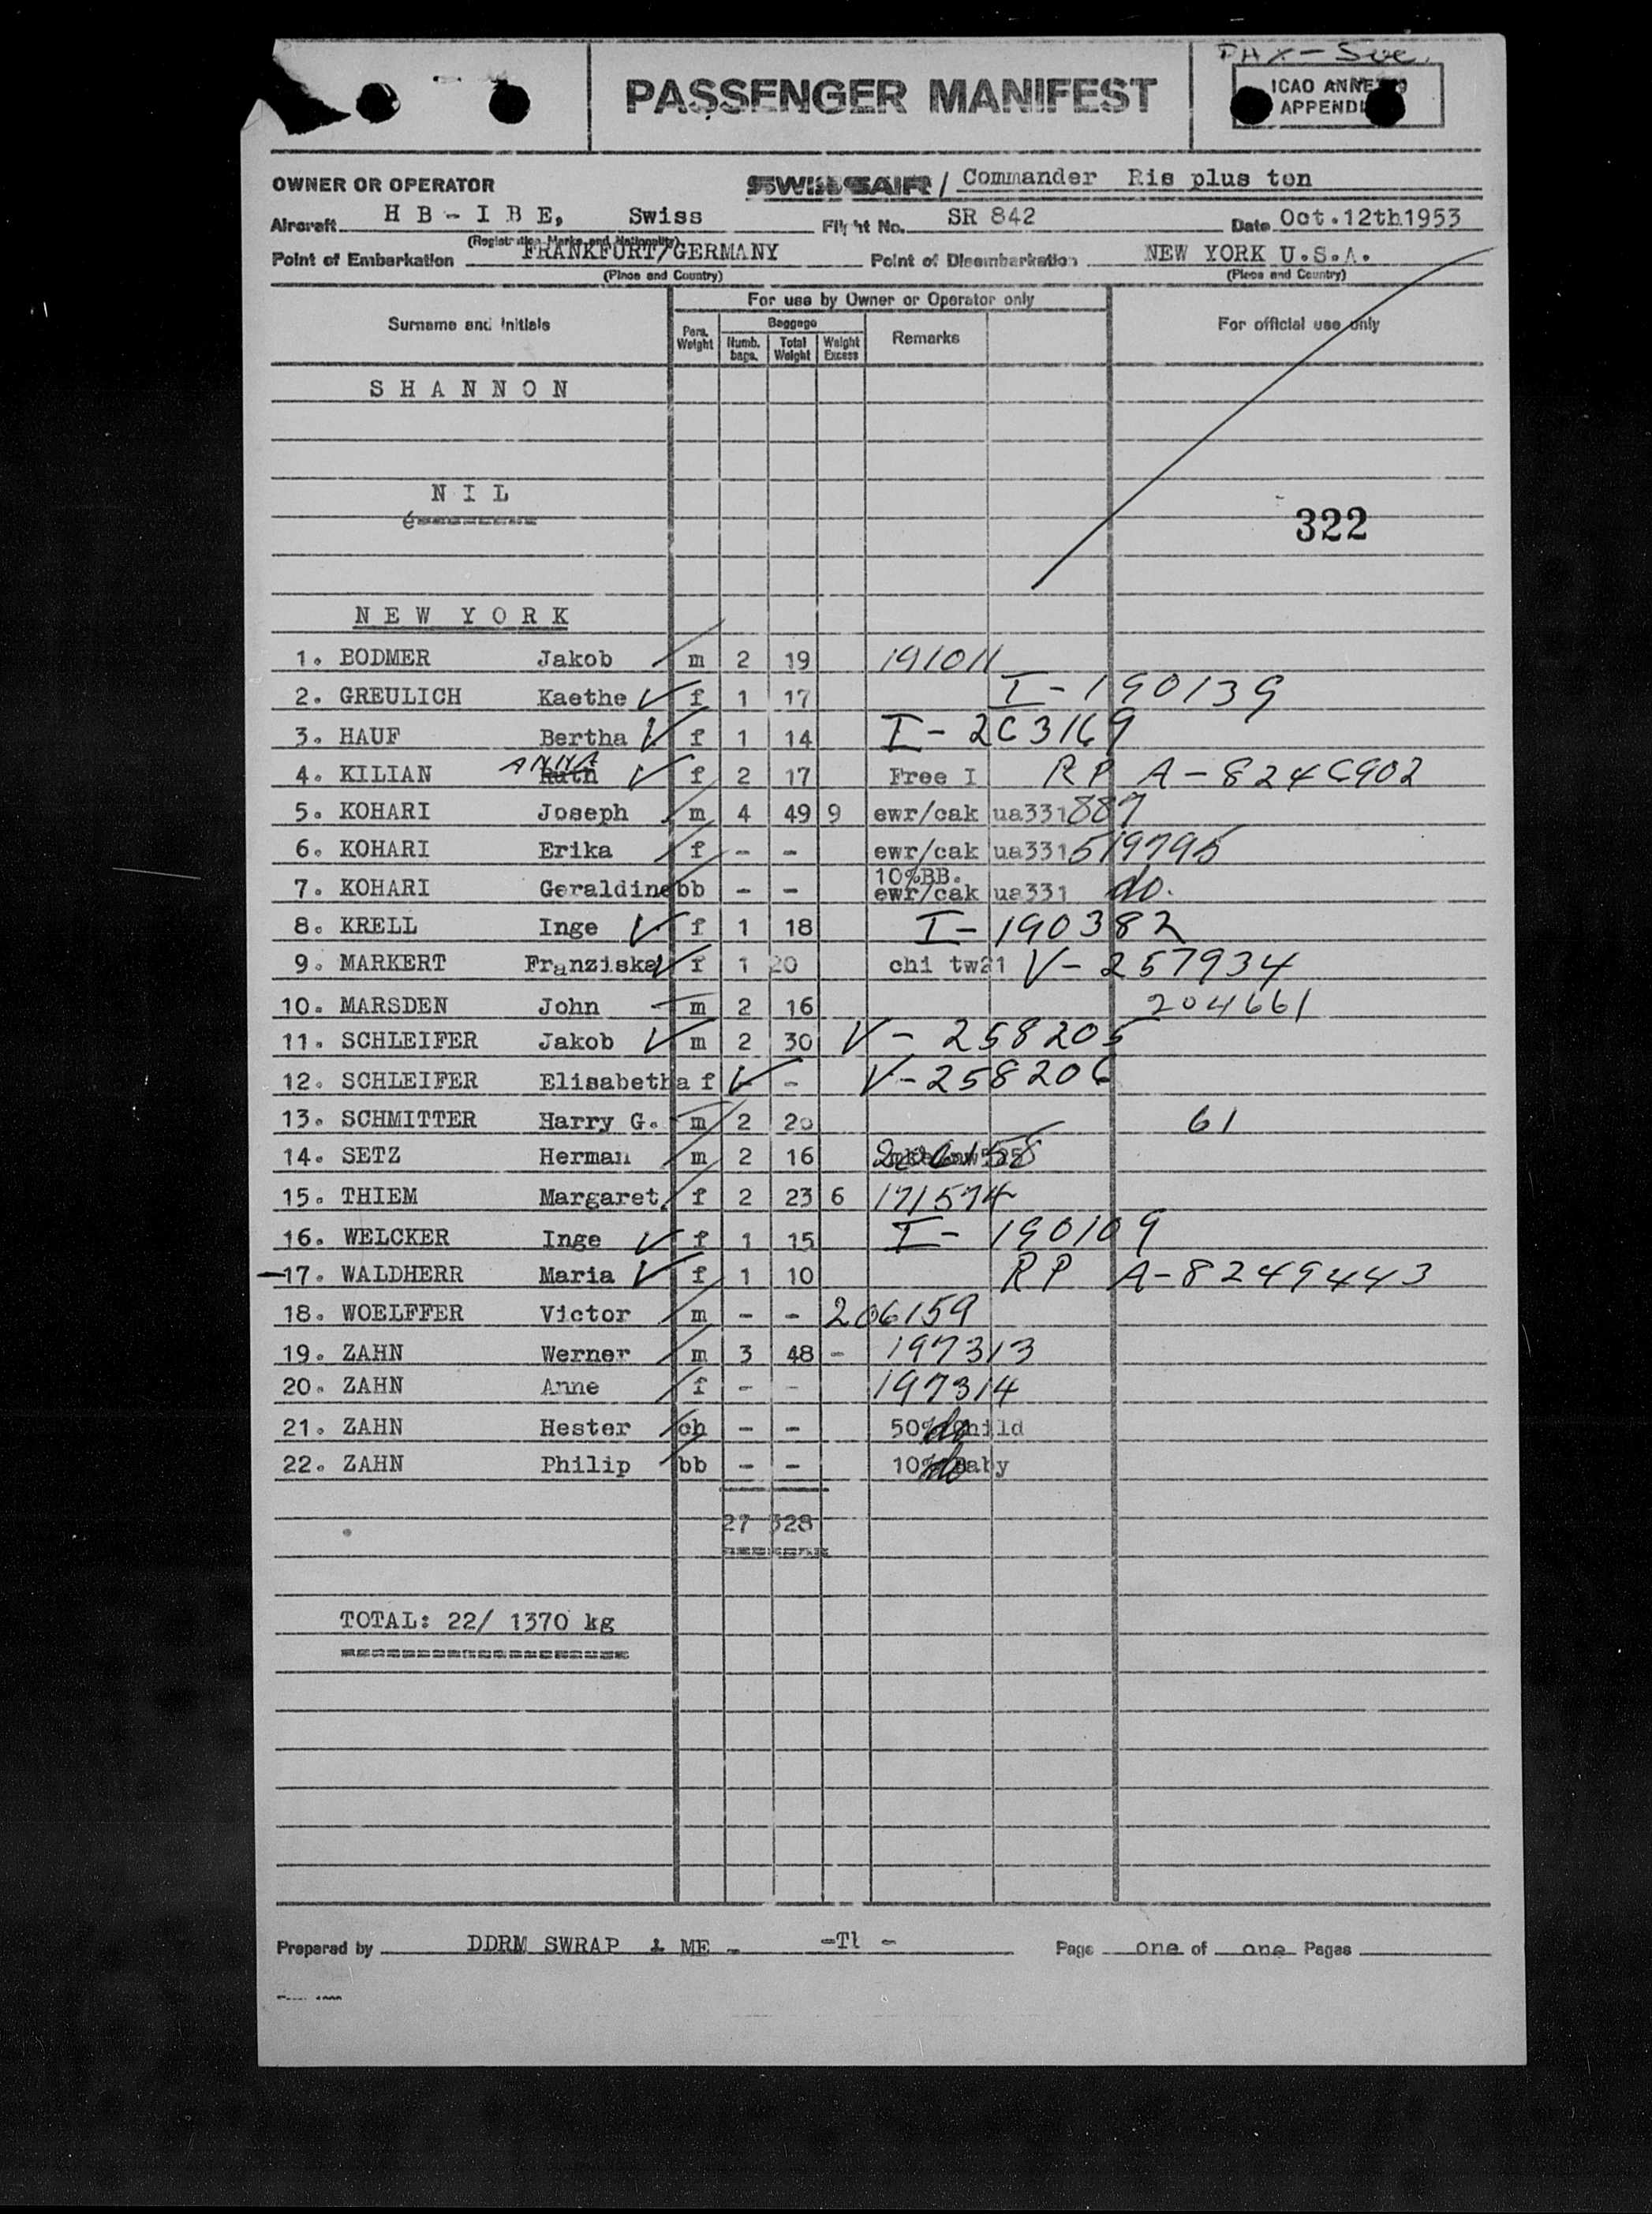 PAX - Sue.
PASSENGER MANIFEST
ICAO ANNEX 9
APPENDI
OWNER OR OPERATOR SWISSAIR / Commander Ris plus ton
Aircraft H B - I B E, Swiss Flight No. SR 842 Date Oct.12th1953
(Registration Marks and Nationality)
Point of Embarkation FRANKFURT/GERMANY Point of Disembarkation NEW YORK U.S.A.
(Place and Country) (Place and Country)
For use by Owner or Operator only
Surname and Initials Pers. Weight Baggage Numb. bags. Total Weight Weight Excess Remarks For official use only
S H A N N O N
N I L
322
N E W Y O R K
1. BODMER Jakob m 2 19 191011
2. GREULICH Kaethe f 1 17 I-190139
3. HAUF Bertha f 1 14 I-263169
ANNA
4. KILIAN Ruth f 2 17 Free I RP A-8246902
5. KOHARI Joseph m 4 49 9 ewr/cak ua331 887
6. KOHARI Erika f - - ewr/cak ua331 519795
10%BB.
7. KOHARI Geraldine bb - - ewr/cak ua331 do.
8. KRELL Inge f 1 18 I-190382
9. MARKERT Franziska f 1 20 chi tw21 V-257934
10. MARSDEN John m 2 16 204661
11. SCHLEIFER Jakob m 2 30 V-258205
12. SCHLEIFER Elisabetha f - - V-258206
13. SCHMITTER Harry G. m 2 20 61
14. SETZ Herman m 2 16 206158
15. THIEM Margaret. f 2 23 6 171574
16. WELCKER Inge f 1 15 I-190109
-17. WALDHERR Maria f 1 10 RP A-8249443
18. WOELFFER Victor m - - 206159
19. ZAHN Werner m 3 48 - 197313
20. ZAHN Anne f - - 197314
21. ZAHN Hester ch - - 50% Child do
22. ZAHN Philip bb - - 10% Baby do
27 328
TOTAL: 22/ 1370 kg
Prepared by DDRM SWRAP & ME - -Tl - Page one of one Pages